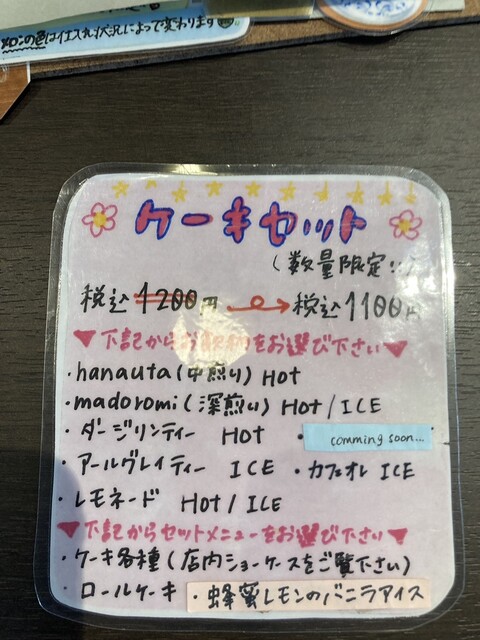 メロンの色は仕入れ状況によって変わります
ケーキセット
(数量限定!!)
税込1200円 → 税込1100円
▼下記からお飲物をお選び下さい▼
・hanauta(中煎り) HOT
・madoromi(深煎り) HOT / ICE
・ダージリンティー HOT ・comming soon...
・アールグレイティー ICE ・カフェオレ ICE
・レモネード HOT / ICE
▼下記からセットメニューをお選び下さい▼
・ケーキ各種(店内ショーケースをご覧下さい)
・ロールケーキ ・蜂蜜レモンのバニラアイス